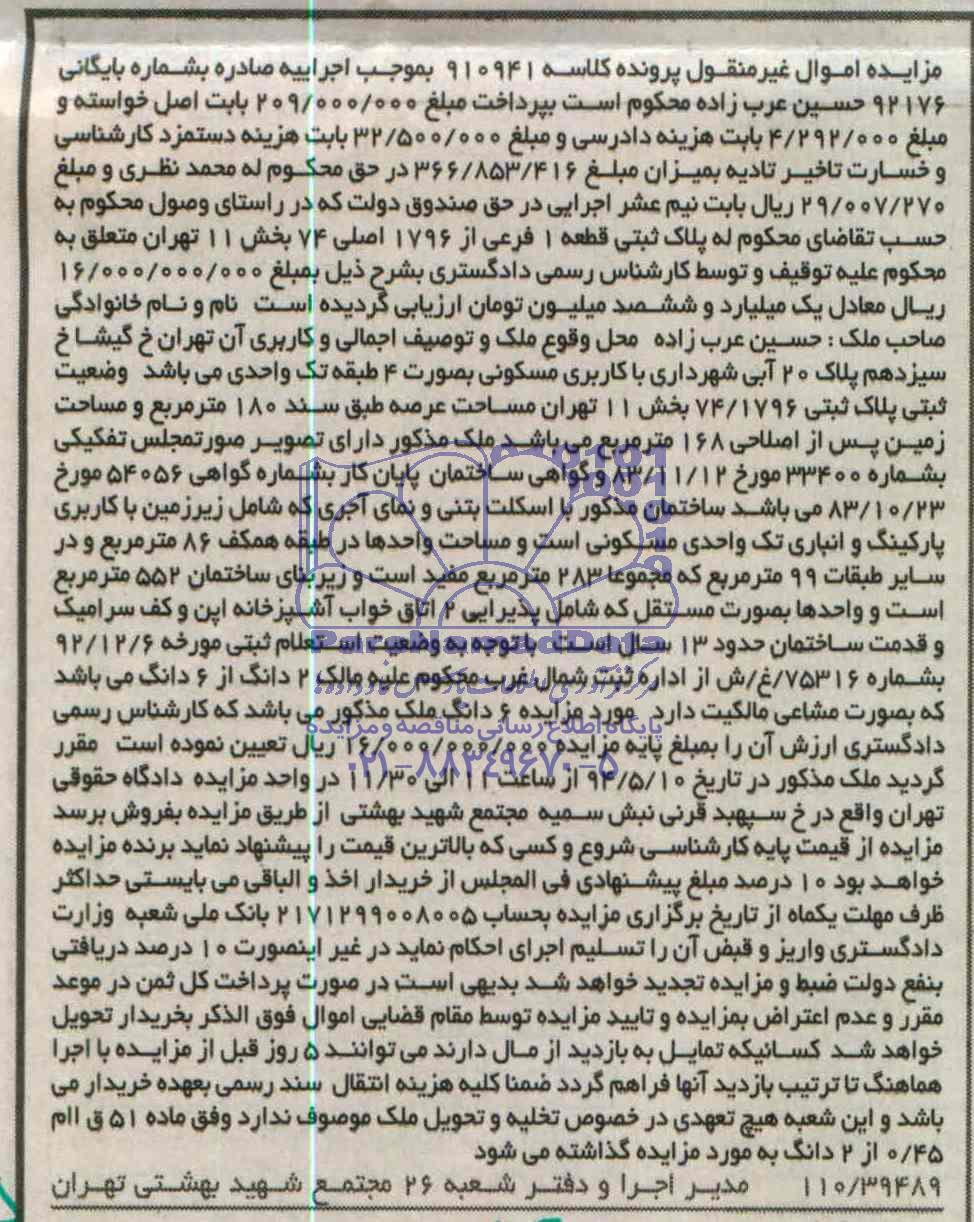 مزایده اموال غیرمنقول پرونده کلاسه ۹۱۰۹۴۱ بموجب اجراییه صادره بشماره بایگانی
۹۲۱۷۶ حسین عرب زاده محکوم است بپرداخت مبلغ ۲۰۹/۰۰۰/۰۰۰ بابت اصل خواسته و
مبلغ ۴/۲۹۲/۰۰۰ بابت هزینه دادرسی و مبلغ ۳۲/۵۰۰/۰۰۰ بابت هزینه دستمزد کارشناسی
و خسارت تاخیر تادیه بمیزان مبلغ ۳۶۶/۸۵۳/۴۱۶ در حق محکوم له محمد نظری و مبلغ
۲۹/۰۰۷/۲۷۰ ریال بابت نیم عشر اجرایی در حق صندوق دولت که در راستای وصول محکوم به
حسب تقاضای محکوم له پلاک ثبتی قطعه ۱ فرعی از ۱۷۹۶ اصلی ۷۴ بخش ۱۱ تهران متعلق به
محکوم علیه توقیف و توسط کارشناس رسمی دادگستری بشرح ذیل بمبلغ ۱۶/۰۰۰/۰۰۰/۰۰۰
ریال معادل یک میلیارد و ششصد میلیون تومان ارزیابی گردیده است نام و نام خانوادگی
صاحب ملک : حسین عرب زاده محل وقوع ملک و توصیف اجمالی و کاربری آن تهران خ گیشا خ
سیزدهم پلاک ۲۰ آبی شهرداری با کاربری مسکونی بصورت ۴ طبقه تک واحدی می باشد وضعیت
ثبتی پلاک ثبتی ۷۴/۱۷۹۶ بخش ۱۱ تهران مساحت عرصه طبق سند ۱۸۰ مترمربع و مساحت
زمین پس از اصلاحی ۱۶۸ مترمربع می باشد ملک مذکور دارای تصویر صورتمجلس تفکیکی
بشماره ۳۳۴۰۰ مورخ ۸۳/۱۱/۱۲ و گواهی ساختمان پایان کار بشماره گواهی ۵۴۰۵۶ مورخ
۸۳/۱۰/۲۳ می باشد ساختمان مذکور با اسکلت بتنی و نمای آجری که شامل زیرزمین با کاربری
پارکینگ و انباری تک واحدی مسکونی است و مساحت واحدها در طبقه همکف ۸۶ مترمربع و در
سایر طبقات ۹۹ مترمربع که مجموعا ۲۸۳ مترمربع مفید است و زیربنای ساختمان ۵۵۲ مترمربع
است و واحدها بصورت مستقل که شامل پذیرایی ۲ اتاق خواب آشپزخانه اپن و کف سرامیک
و قدمت ساختمان حدود ۱۳ سال است با توجه به وضعیت استعلام ثبتی مورخه ۹۲/۱۲/۶
بشماره ۷۵۳۱۶/غ/ش از اداره ثبت شمال غرب محکوم علیه مالک ۲ دانگ از ۶ دانگ می باشد
که بصورت مشاعی مالکیت دارد مورد مزایده ۶ دانگ ملک مذکور می باشد که کارشناس رسمی
دادگستری ارزش آن را بمبلغ پایه مزایده ۱۶/۰۰۰/۰۰۰/۰۰۰ ریال تعیین نموده است مقرر
گردید ملک مذکور در تاریخ ۹۴/۵/۱۰ از ساعت ۱۱ الی ۱۱/۳۰ در واحد مزایده دادگاه حقوقی
تهران واقع در خ سپهبد قرنی نبش سمیه مجتمع شهید بهشتی از طریق مزایده بفروش برسد
مزایده از قیمت پایه کارشناسی شروع و کسی که بالاترین قیمت را پیشنهاد نماید برنده مزایده
خواهد بود ۱۰ درصد مبلغ پیشنهادی فی المجلس از خریدار اخذ و الباقی می بایستی حداکثر
ظرف مهلت یکماه از تاریخ برگزاری مزایده بحساب ۲۱۷۱۲۹۹۰۰۸۰۰۵ بانک ملی شعبه وزارت
دادگستری واریز و قبض آن را تسلیم اجرای احکام نماید در غیر اینصورت ۱۰ درصد دریافتی
بنفع دولت ضبط و مزایده تجدید خواهد شد بدیهی است در صورت پرداخت کل ثمن در موعد
مقرر و عدم اعتراض بمزایده و تایید مزایده توسط مقام قضایی اموال فوق الذکر بخریدار تحویل
خواهد شد کسانیکه تمایل به بازدید از مال دارند می توانند ۵ روز قبل از مزایده با اجرا
هماهنگ تا ترتیب بازدید آنها فراهم گردد ضمنا کلیه هزینه انتقال سند رسمی بعهده خریدار می
باشد و این شعبه هیچ تعهدی در خصوص تخلیه و تحویل ملک موصوف ندارد وفق ماده ۵۱ ق اام
۰/۴۵ از ۲ دانگ به مورد مزایده گذاشته می شود
۱۱۰/۳۹۴۸۹ مدیر اجرا و دفتر شعبه ۲۶ مجتمع شهید بهشتی تهران
ParsNamadData
پایگاه اطلاع رسانی مناقصه و مزایده
۰۲۱-۸۸۳۴۹۶۷۰-۵